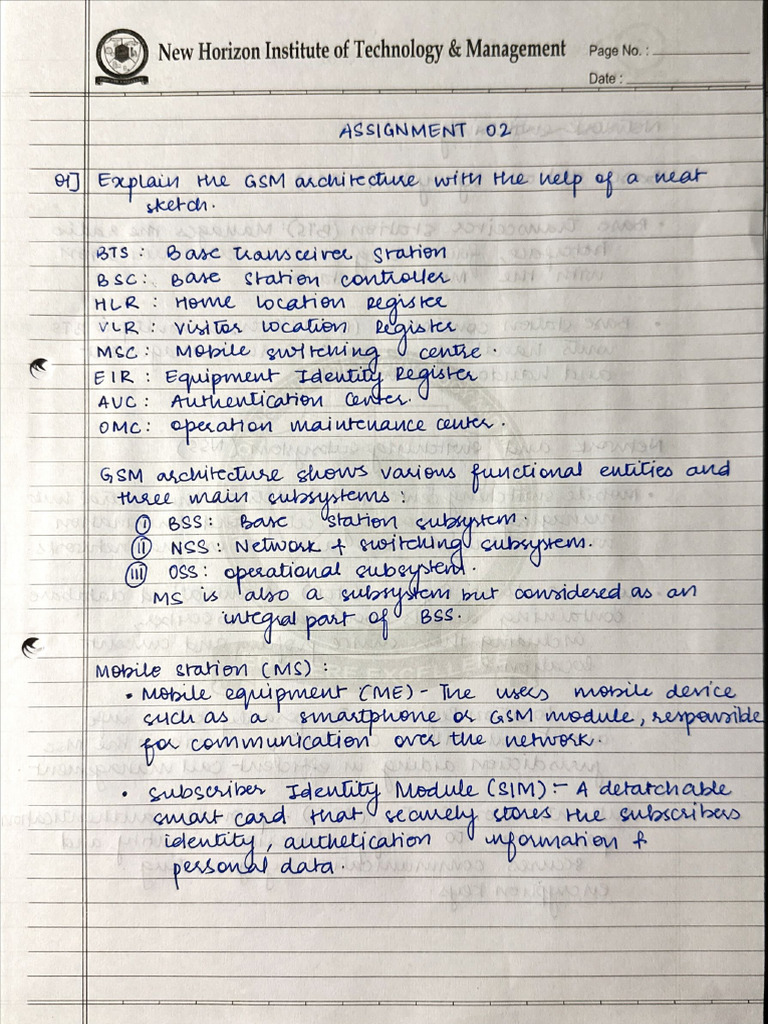 New Horizon Institute of Technology & Management
Page No. :
Date :
ASSIGNMENT 02
01] Explain the GSM architecture with the help of a neat
sketch.
BTS : Base Transceiver Station
BSC : Base Station controller
HLR : Home location Register
VLR : Visitor location Register
MSC : Mobile switching centre.
EIR : Equipment Identity Register
AUC : Authentication Center.
OMC : operation maintenance center.
GSM architecture shows various functional entities and
three main subsystems :
(i) BSS : Base station subsystem.
(ii) NSS : Network & switching subsystem.
(iii) OSS : operational subsystem.
MS is also a subsystem but considered as an
integral part of BSS.
Mobile station (MS) :
• Mobile equipment (ME) - The users mobile device
such as a smartphone or GSM module, responsible
for communication over the network.
• Subscriber Identity Module (SIM) :- A detatchable
smart card that securely stores the subscribers
identity, authetication information &
personal data.